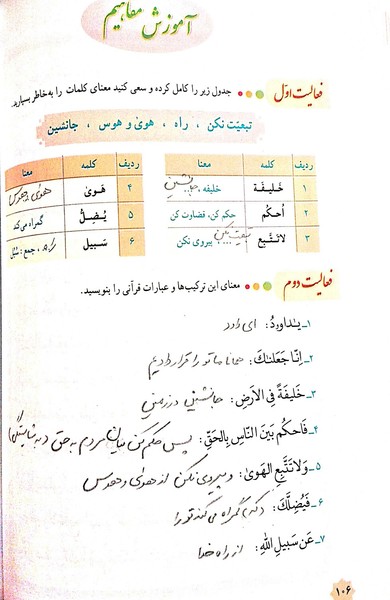 آموزش مفاهیم
فعالیت اوّل ● ● ● جدول زیر را کامل کرده و سعی کنید معنای کلمات را به‌خاطر بسپارید.
تبعیّت نکن ، راه ، هویٰ و هوس ، جانشین
ردیف کلمه معنا ردیف کلمه معنا
۱ خَلیفَة خلیفه، جانشین ۴ هَویٰ هوای و هوس
۲ اُحکُم حکم کن، قضاوت کن ۵ یُضِلُّ گمراه می‌کند
۳ لاتَتَّبِع تبعیت نکن، پیروی نکن ۶ سَبیل راه، جمع: سُبُل
فعالیت دوم ● ● ● معنای این ترکیب‌ها و عبارات قرآنی را بنویسید.
۱ـ یٰداوۥدُ: ای داود
۲ـ اِنّا جَعَلناكَ: همانا ما تو را قرار دادیم
۳ـ خَلیفَةً فِی الاَرضِ: جانشینی در زمین
۴ـ فَاحکُم بَینَ النّاسِ بِالحَقِّ: پس حکم کن میان مردم به حق (به شایستگی)
۵ـ وَلا تَتَّبِعِ الهَویٰ: و پیروی نکن از هوای و هوس
۶ـ فَیُضِلَّكَ: (که) گمراه می‌کند تو را
۷ـ عَن سَبیلِ اللّٰهِ: از راه خدا
۱۰۶